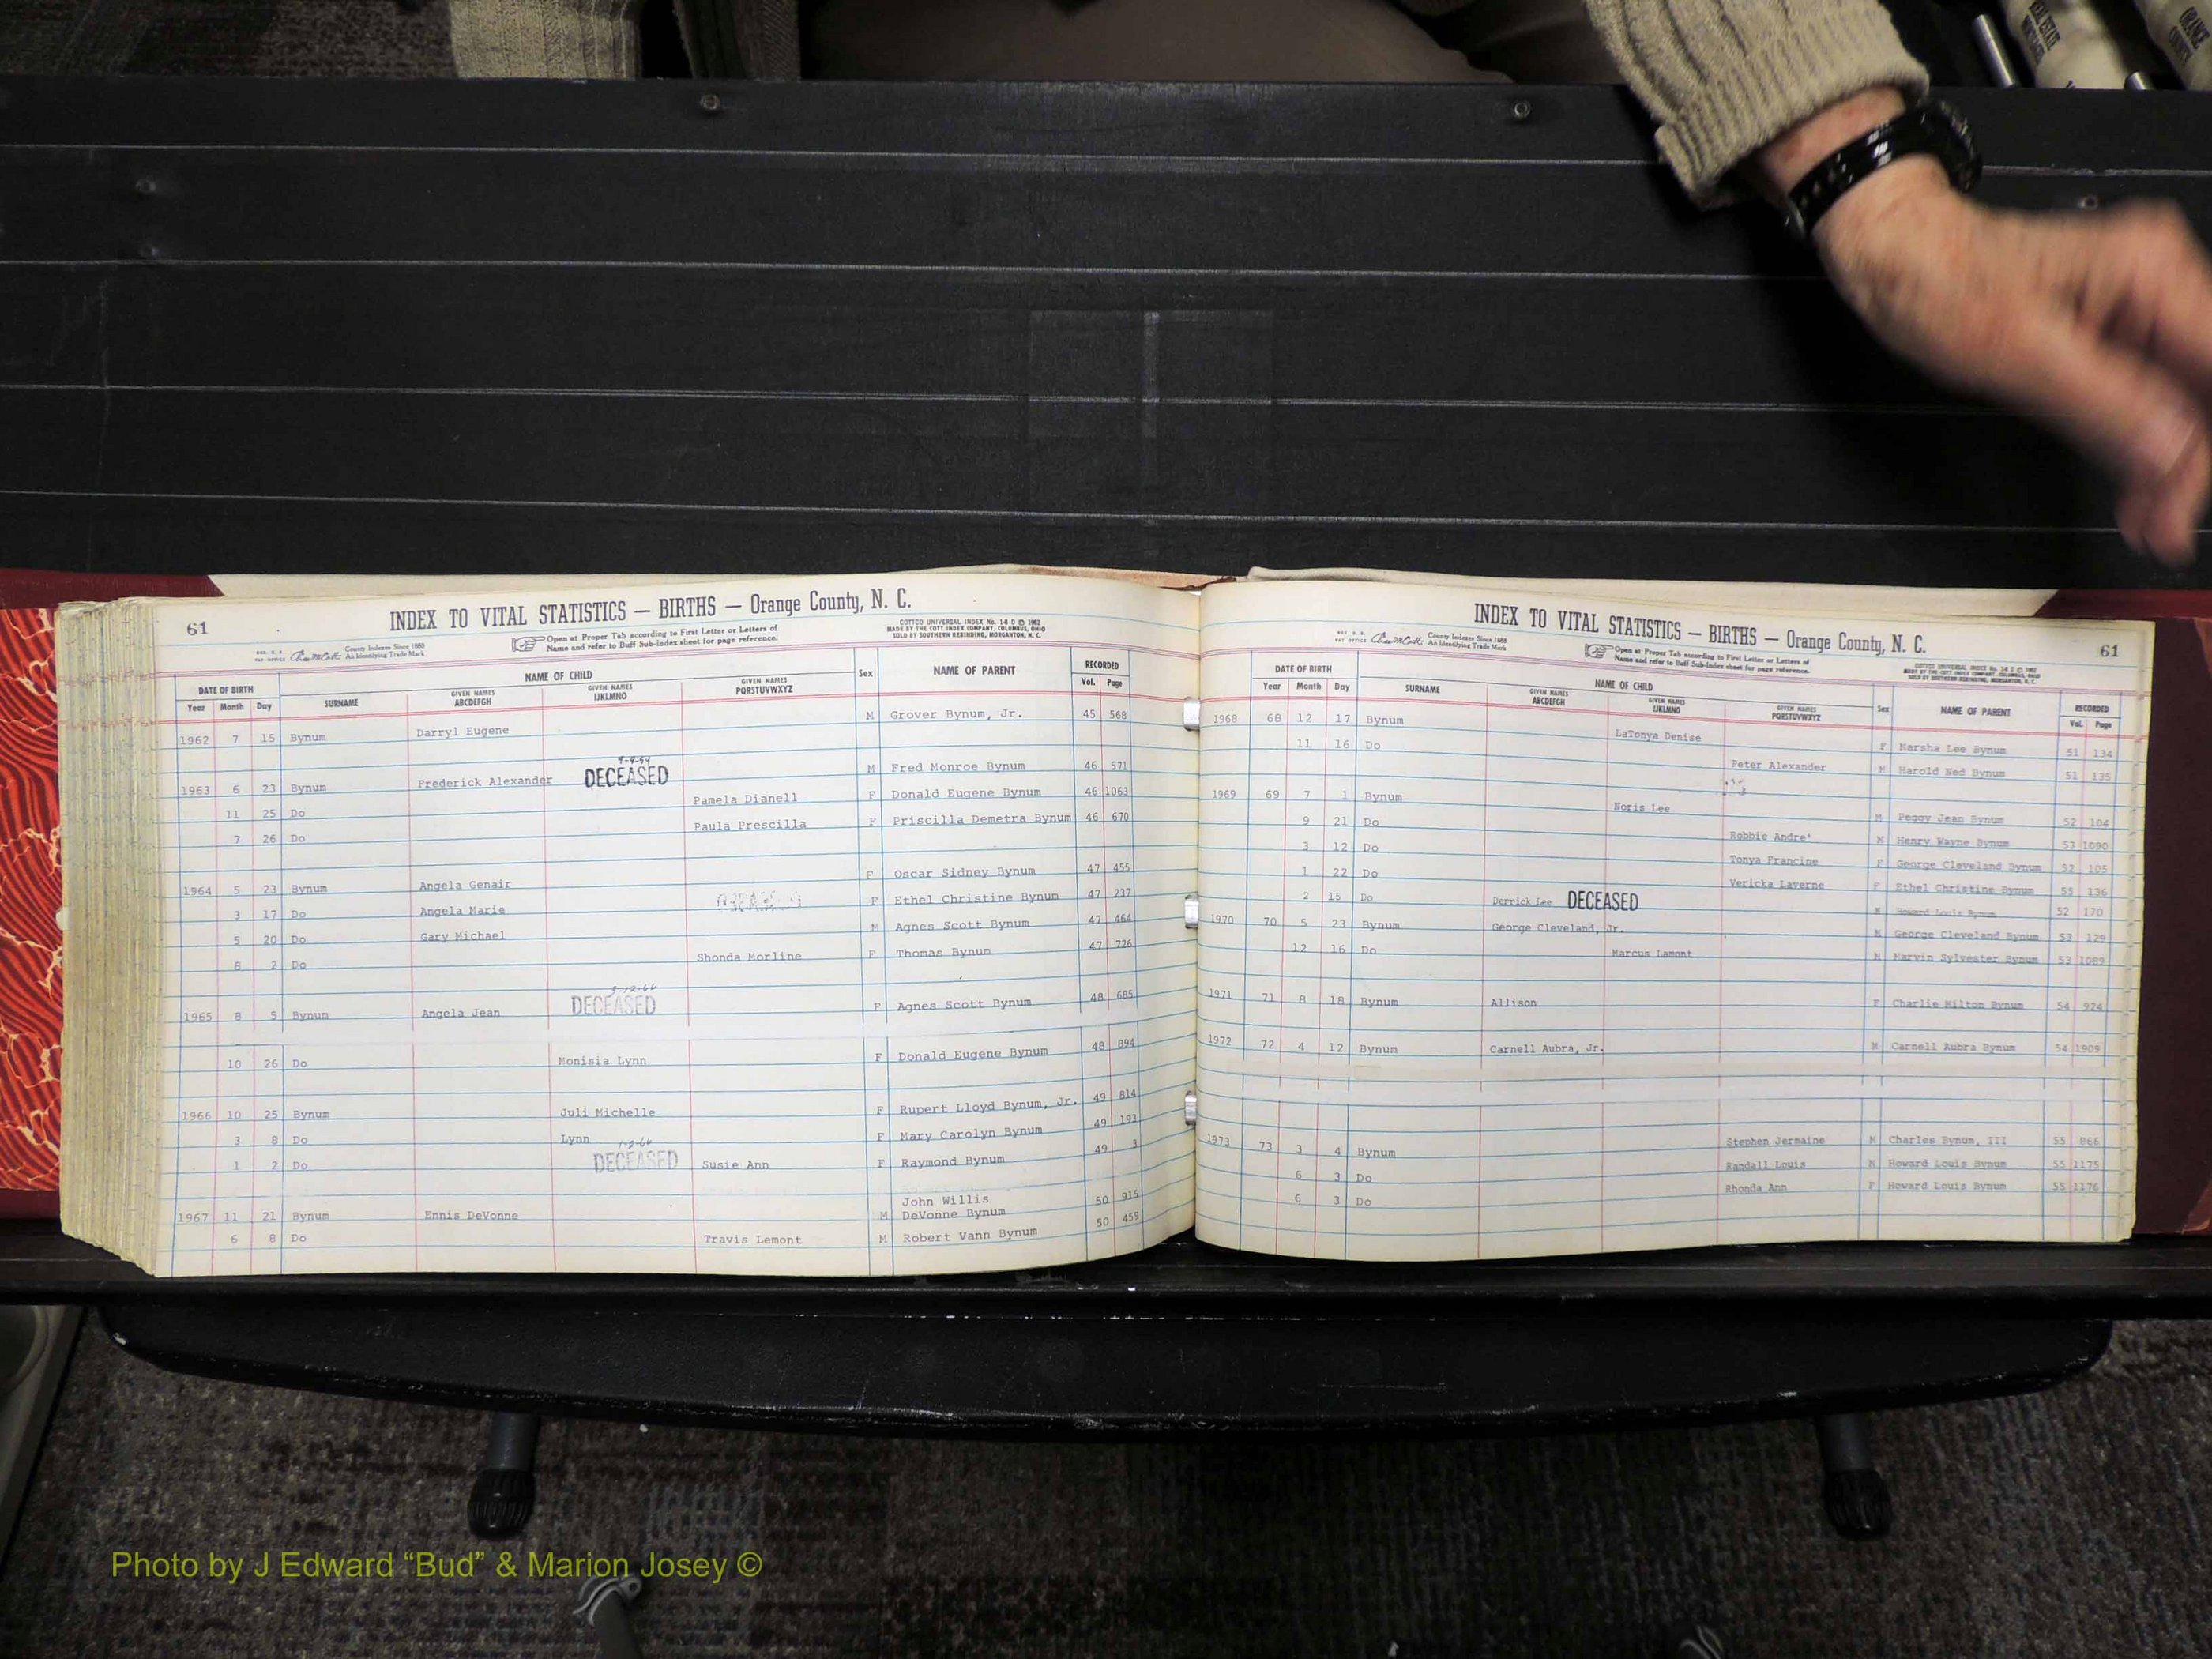 61
INDEX TO VITAL STATISTICS — BIRTHS — Orange County, N. C.
County Indexes Since 1888
An Identifying Trade Mark
Open at Proper Tab according to First Letter or Letters of
Name and refer to Buff Sub-Index sheet for page reference.
COTTCO UNIVERSAL INDEX No. 1-8 D © 1962
MADE BY THE COTT INDEX COMPANY, COLUMBUS, OHIO
SOLD BY SOUTHERN REBINDING, MORGANTON, N. C.
DATE OF BIRTH NAME OF CHILD Sex NAME OF PARENT RECORDED
Year Month Day SURNAME GIVEN NAMES ABCDEFGH GIVEN NAMES IJKLMNO GIVEN NAMES PQRSTUVWXYZ Vol. Page
1962 7 15 Bynum Darryl Eugene M Grover Bynum, Jr. 45 568
1963 6 23 Bynum Frederick Alexander DECEASED M Fred Monroe Bynum 46 571
11 25 Do Pamela Dianell F Donald Eugene Bynum 46 1063
7 26 Do Paula Prescilla F Priscilla Demetra Bynum 46 670
1964 5 23 Bynum Angela Genair F Oscar Sidney Bynum 47 455
3 17 Do Angela Marie F Ethel Christine Bynum 47 237
5 20 Do Gary Michael M Agnes Scott Bynum 47 464
8 2 Do Shonda Morline F Thomas Bynum 47 726
1965 8 5 Bynum Angela Jean 3-12-66 DECEASED F Agnes Scott Bynum 48 685
10 26 Do Monisia Lynn F Donald Eugene Bynum 48 894
1966 10 25 Bynum Juli Michelle F Rupert Lloyd Bynum, Jr. 49 814
3 8 Do Lynn F Mary Carolyn Bynum 49 193
1 2 Do 1-2-66 DECEASED Susie Ann F Raymond Bynum 49 3
John Willis
1967 11 21 Bynum Ennis DeVonne M DeVonne Bynum 50 915
6 8 Do Travis Lemont M Robert Vann Bynum 50 459
INDEX TO VITAL STATISTICS — BIRTHS — Orange County, N. C.
61
County Indexes Since 1888
An Identifying Trade Mark
Open at Proper Tab according to First Letter or Letters of
Name and refer to Buff Sub-Index sheet for page reference.
COTTCO UNIVERSAL INDEX No. 1-8 D © 1962
MADE BY THE COTT INDEX COMPANY, COLUMBUS, OHIO
SOLD BY SOUTHERN REBINDING, MORGANTON, N. C.
DATE OF BIRTH NAME OF CHILD Sex NAME OF PARENT RECORDED
Year Month Day SURNAME GIVEN NAMES ABCDEFGH GIVEN NAMES IJKLMNO GIVEN NAMES PQRSTUVWXYZ Vol. Page
1968 68 12 17 Bynum LaTonya Denise F Marsha Lee Bynum 51 134
11 16 Do Peter Alexander M Harold Ned Bynum 51 135
1969 69 7 1 Bynum Noris Lee M Peggy Jean Bynum 52 104
9 21 Do Robbie Andre' M Henry Wayne Bynum 53 1090
3 12 Do Tonya Francine F George Cleveland Bynum 52 105
1 22 Do Vericka Laverne F Ethel Christine Bynum 55 136
2 15 Do Derrick Lee DECEASED M Howard Louis Bynum 52 170
1970 70 5 23 Bynum George Cleveland, Jr. M George Cleveland Bynum 53 129
12 16 Do Marcus Lamont M Marvin Sylvester Bynum 53 1089
1971 71 8 18 Bynum Allison F Charlie Milton Bynum 54 924
1972 72 4 12 Bynum Carnell Aubra, Jr. M Carnell Aubra Bynum 54 1909
1973 73 3 4 Bynum Stephen Jermaine M Charles Bynum, III 55 866
6 3 Do Randall Louis M Howard Louis Bynum 55 1175
6 3 Do Rhonda Ann F Howard Louis Bynum 55 1176
Photo by J Edward “Bud” & Marion Josey ©